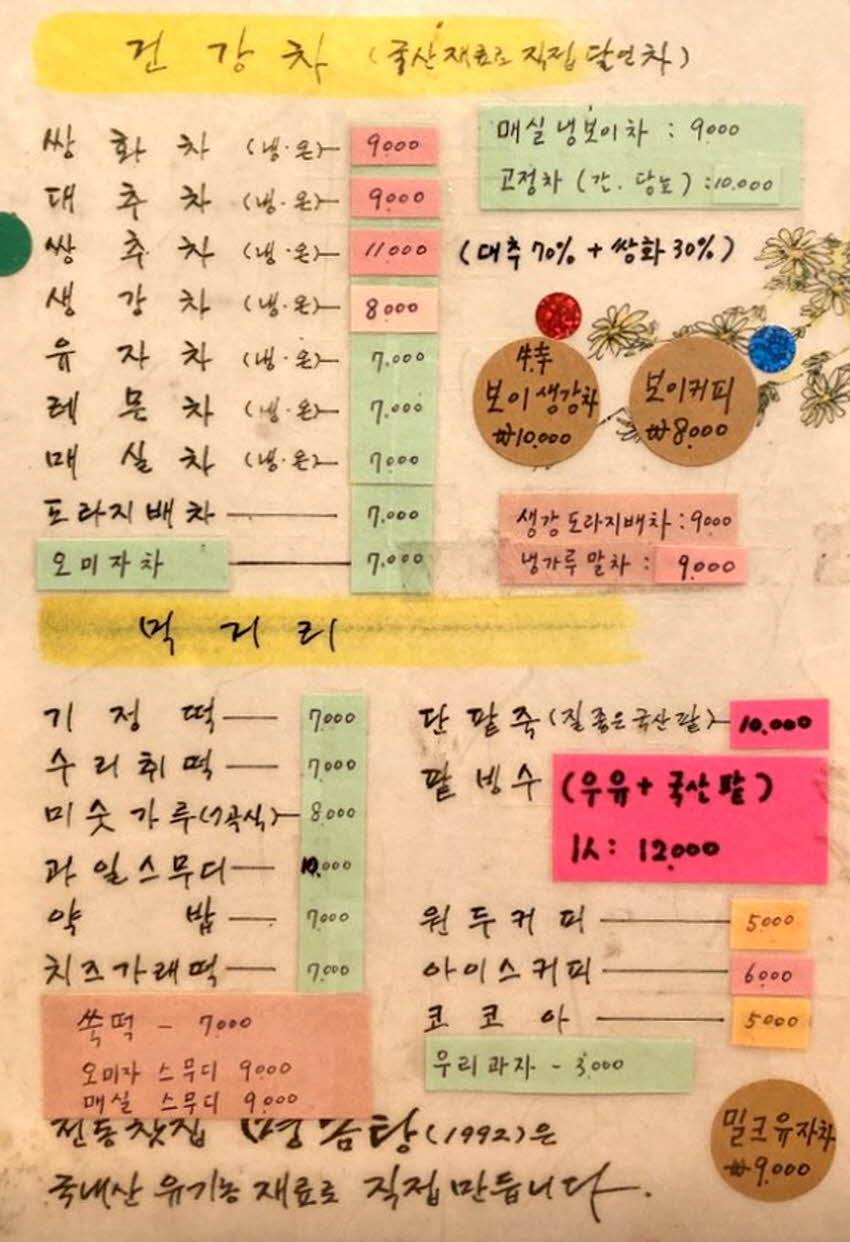 건강차 (국산재료로 직접 달인차)
쌍화차 (냉·온) 9000
대추차 (냉·온) 9000
쌍추차 (냉·온) 11000 (대추 70% + 쌍화 30%)
생강차 (냉·온) 8000
유자차 (냉·온) 7.000
레몬차 (냉·온) 7.000
매실차 (냉·온) 7000
도라지배차 7.000
오미자차 7.000
매실냉보이차 : 9000
고정차 (간. 당뇨) : 10.000
특
보이생강차
₩10.000
보이커피
₩8.000
생강도라지배차 : 9000
냉가루말차 : 9.000
먹거리
기정떡 7.000
수리취떡 7000
미숫가루(7곡식) 8.000
과일스무디 10.000
약밥 7000
치즈가래떡 7.000
쑥떡 - 7000
오미자 스무디 9000
매실 스무디 9000
단팥죽 (질 좋은 국산팥) 10.000
팥빙수 (우유 + 국산팥)
1人: 12.000
원두커피 5.000
아이스커피 6.000
코코아 5000
우리과자 - 3.000
밀크유자차
₩9.000
전통찻집 (1992)은
국내산 유기농 재료로 직접 만듭니다.